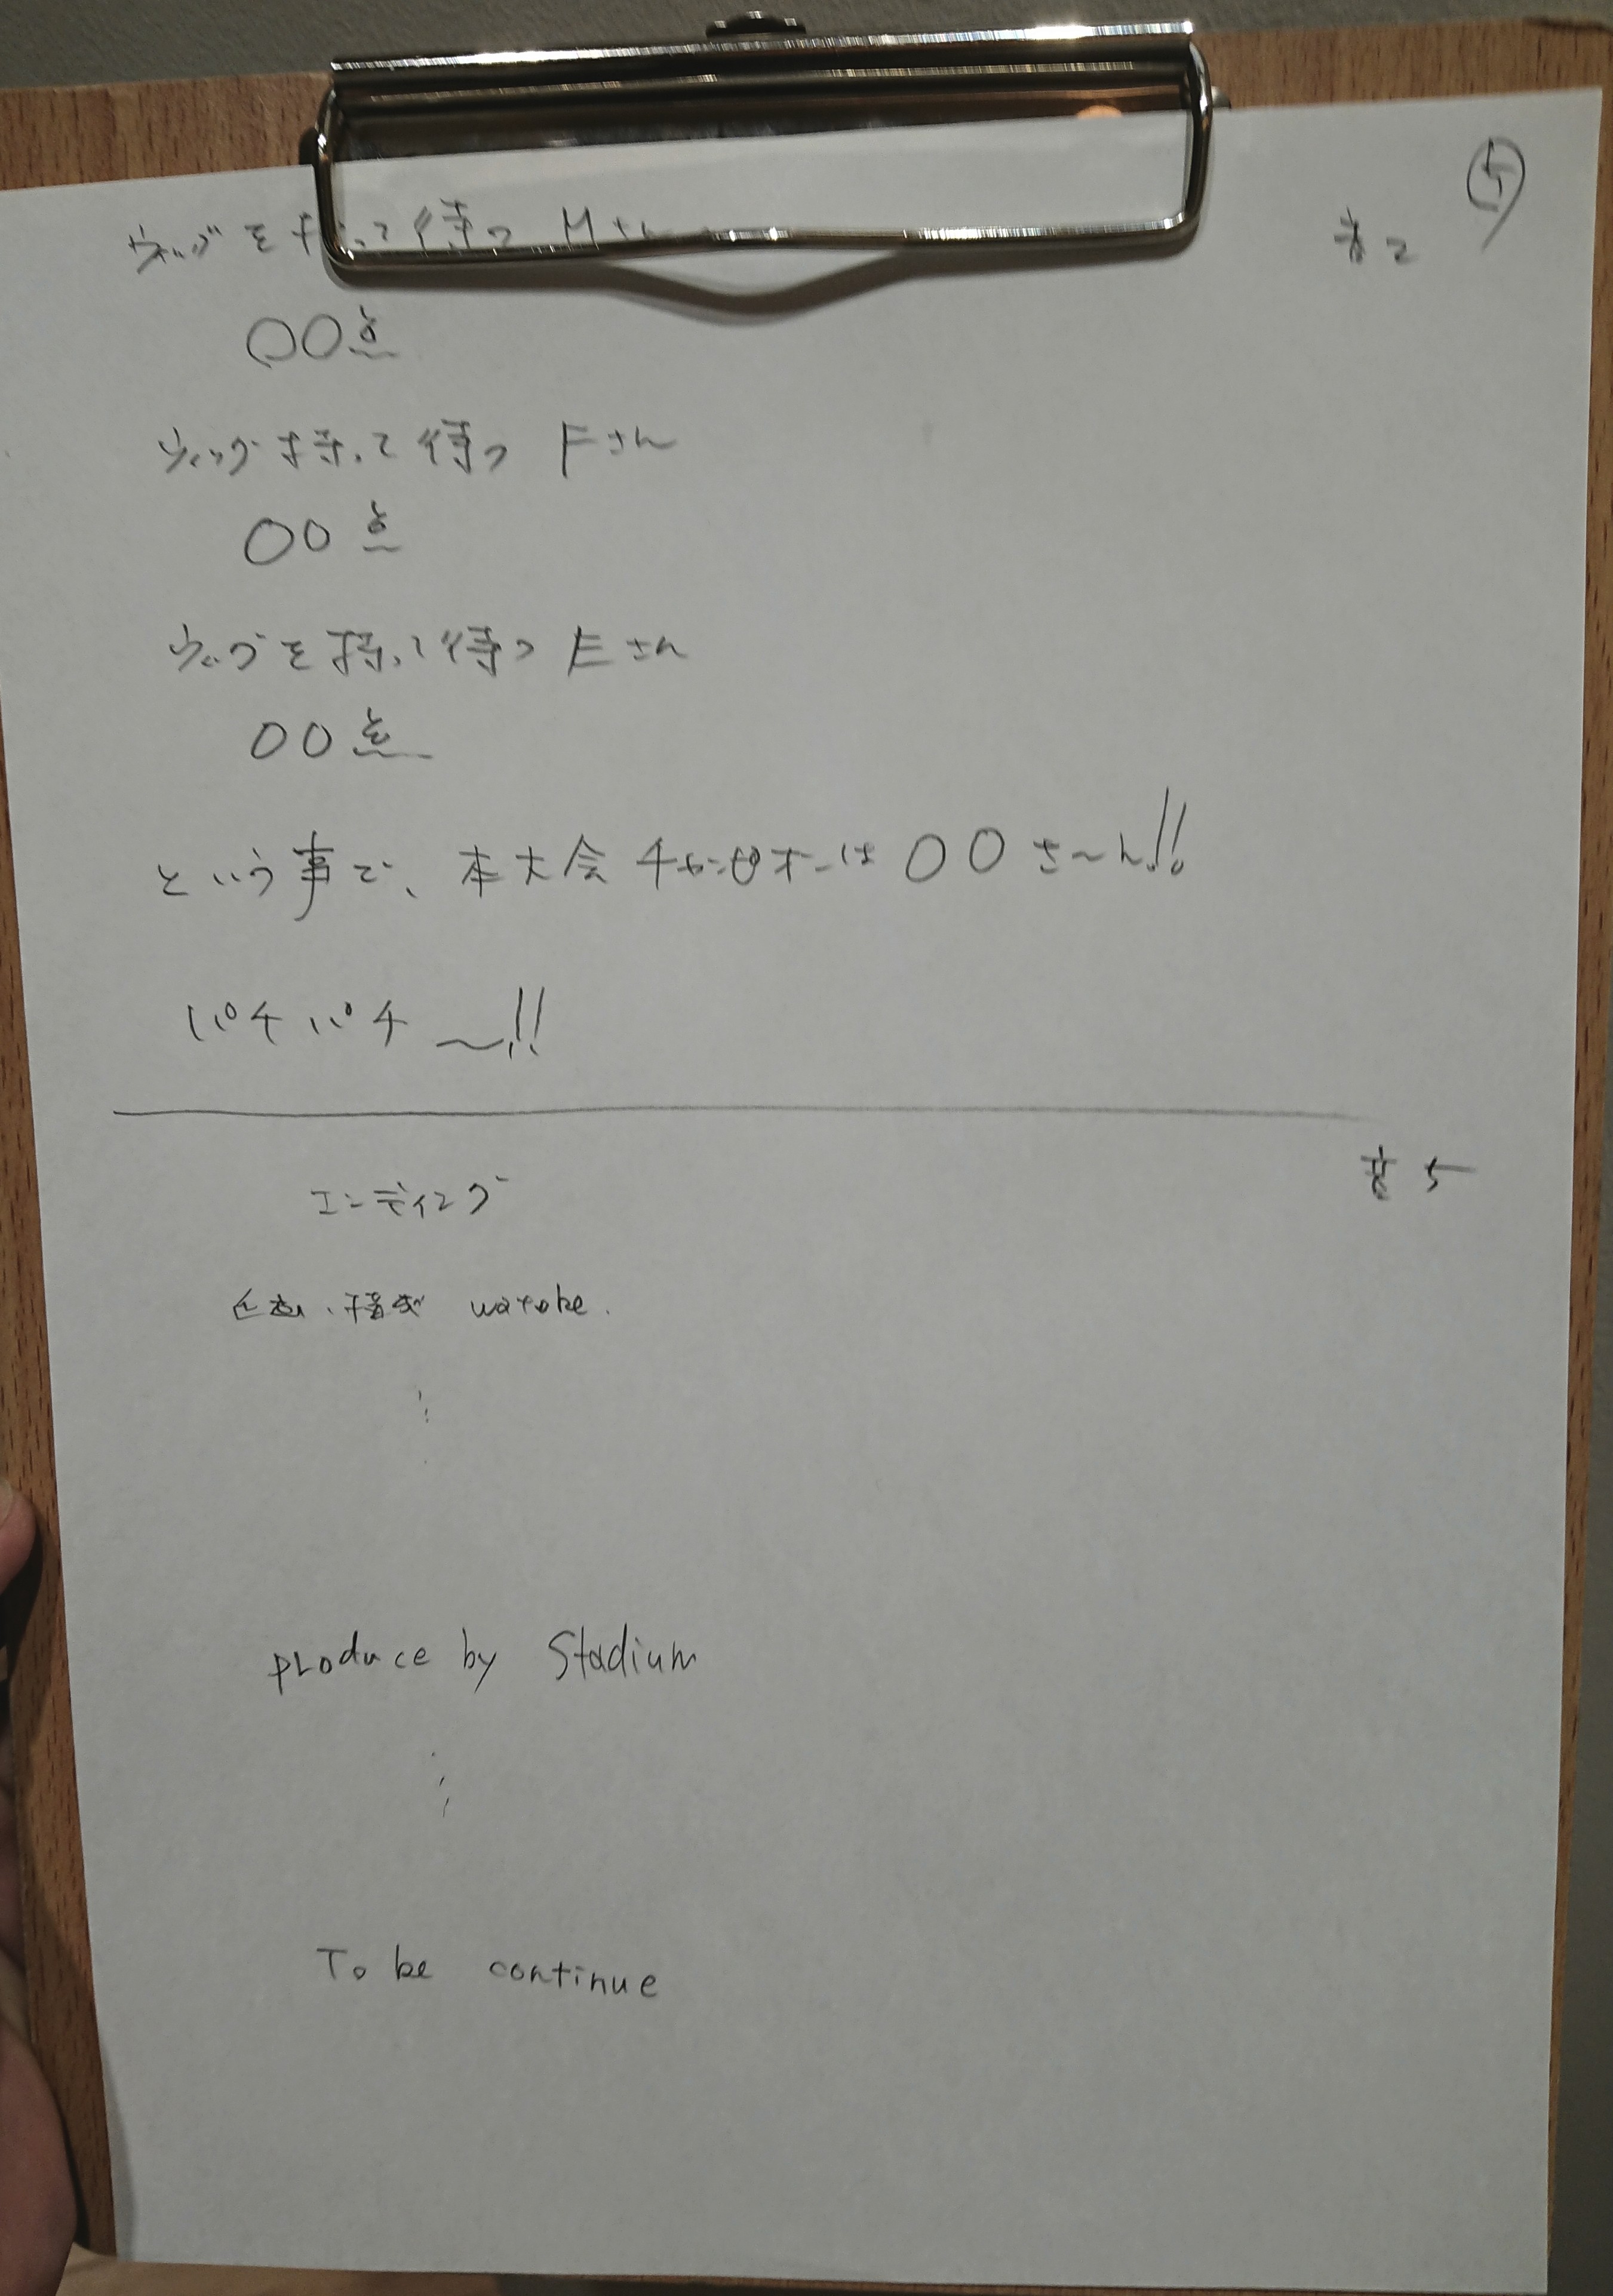 ⑤
ウィッグを持って待つ Mさん 音2
〇〇点
ウィッグ持って待つ Fさん
〇〇点
ウィッグを持って待つ Eさん
〇〇点
という事で、本大会チャンピオンは〇〇さ〜ん!!
パチパチ〜!!
エンディング 音5
企画、構成 watabe.
⋮
produce by Stadium
⋮
To be continue